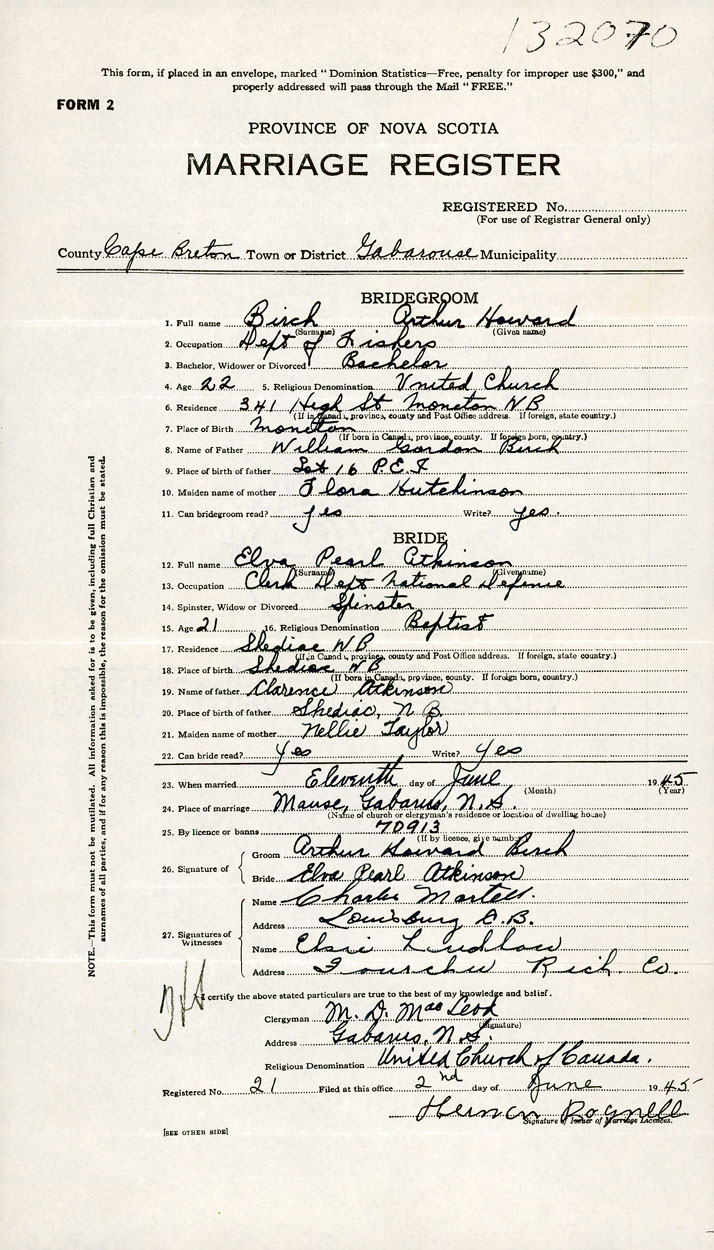 132070
This form, if placed in an envelope, marked "Dominion Statistics—Free, penalty for improper use $300," and
properly addressed will pass through the Mail "FREE."
FORM 2
PROVINCE OF NOVA SCOTIA
MARRIAGE REGISTER
REGISTERED No.
(For use of Registrar General only)
County Cape Breton Town or District Gabarouse Municipality
BRIDEGROOM
1. Full name Birch Arthur Howard
(Surname) (Given name)
2. Occupation Dept of Fishers
3. Bachelor, Widower or Divorced Bachelor
4. Age 22 5. Religious Denomination United Church
6. Residence 341 High St Moncton NB
(If in Canada, province, county and Post Office address. If foreign, state country.)
7. Place of Birth Moncton
(If born in Canada, province, county. If foreign born, country.)
8. Name of Father William Gordon Birch
9. Place of birth of father Lot 16 P.E.I
10. Maiden name of mother Flora Hutchinson
11. Can bridegroom read? yes Write? yes.
BRIDE
12. Full name Elva Pearl Atkinson
(Surname) (Given name)
13. Occupation Clerk Dept National Defense
14. Spinster, Widow or Divorced Spinster
15. Age 21 16. Religious Denomination Baptist
17. Residence Shediac NB
(If in Canada, province, county and Post Office address. If foreign, state country.)
18. Place of birth Shediac NB
(If born in Canada, province, county. If foreign born, country.)
19. Name of father Clarence Atkinson
20. Place of birth of father Shediac, N B.
21. Maiden name of mother Nellie Taylor
22. Can bride read? Yes Write? Yes
23. When married Eleventh day of June 1945
(Month) (Year)
24. Place of marriage Manse, Gabarus, N.S.
(Name of church or clergyman's residence or location of dwelling house)
25. By licence or banns 70913
(If by licence, give number)
26. Signature of
Groom Arthur Howard Birch
Bride Elva Pearl Atkinson
27. Signatures of Witnesses
Name Charlie Martell.
Address Louisburg C.B.
Name Elsie Ludlow
Address Fourchu Rich. Co.
I certify the above stated particulars are true to the best of my knowledge and belief.
Clergyman M. D. MacLeod
(Signature)
Address Gabarus, N.S.
Religious Denomination United Church of Canada.
Registered No. 21 Filed at this office 2nd day of June 1945
Signature of Issuer of Marriage Licences.
[SEE OTHER SIDE]
NOTE.—This form must not be mutilated. All information asked for is to be given, including full Christian and
surnames of all parties, and if for any reason this is impossible, the reason for the omission must be stated.